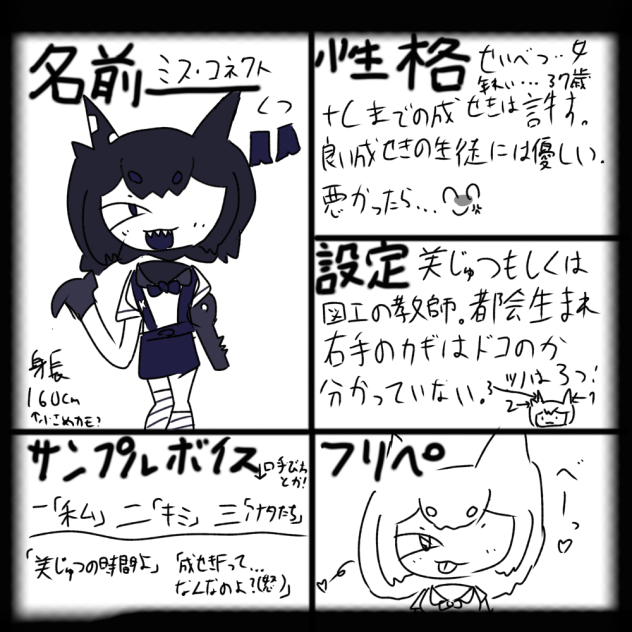 名前 ミス・コネクト
くつ
身長
160cm
↑小さめかも?
性格 せいべつ…女
年れい…37歳
十Cまでの成せきは許す。
良い成せきの生徒には優しい.
悪かったら…
設定 美じゅつもしくは
図工の教師。都会生まれ
右手のカギはドコのか
分かっていない。
ツノは3つ!
3
2
1
サンプルボイス
↓口手びかとか!
一「私」 二「キミ」 三「ナタたち」
「美じゅつの時間よ」 「成せきFって…
なんなのよ?(怒)」
フリペ
べーっ♡